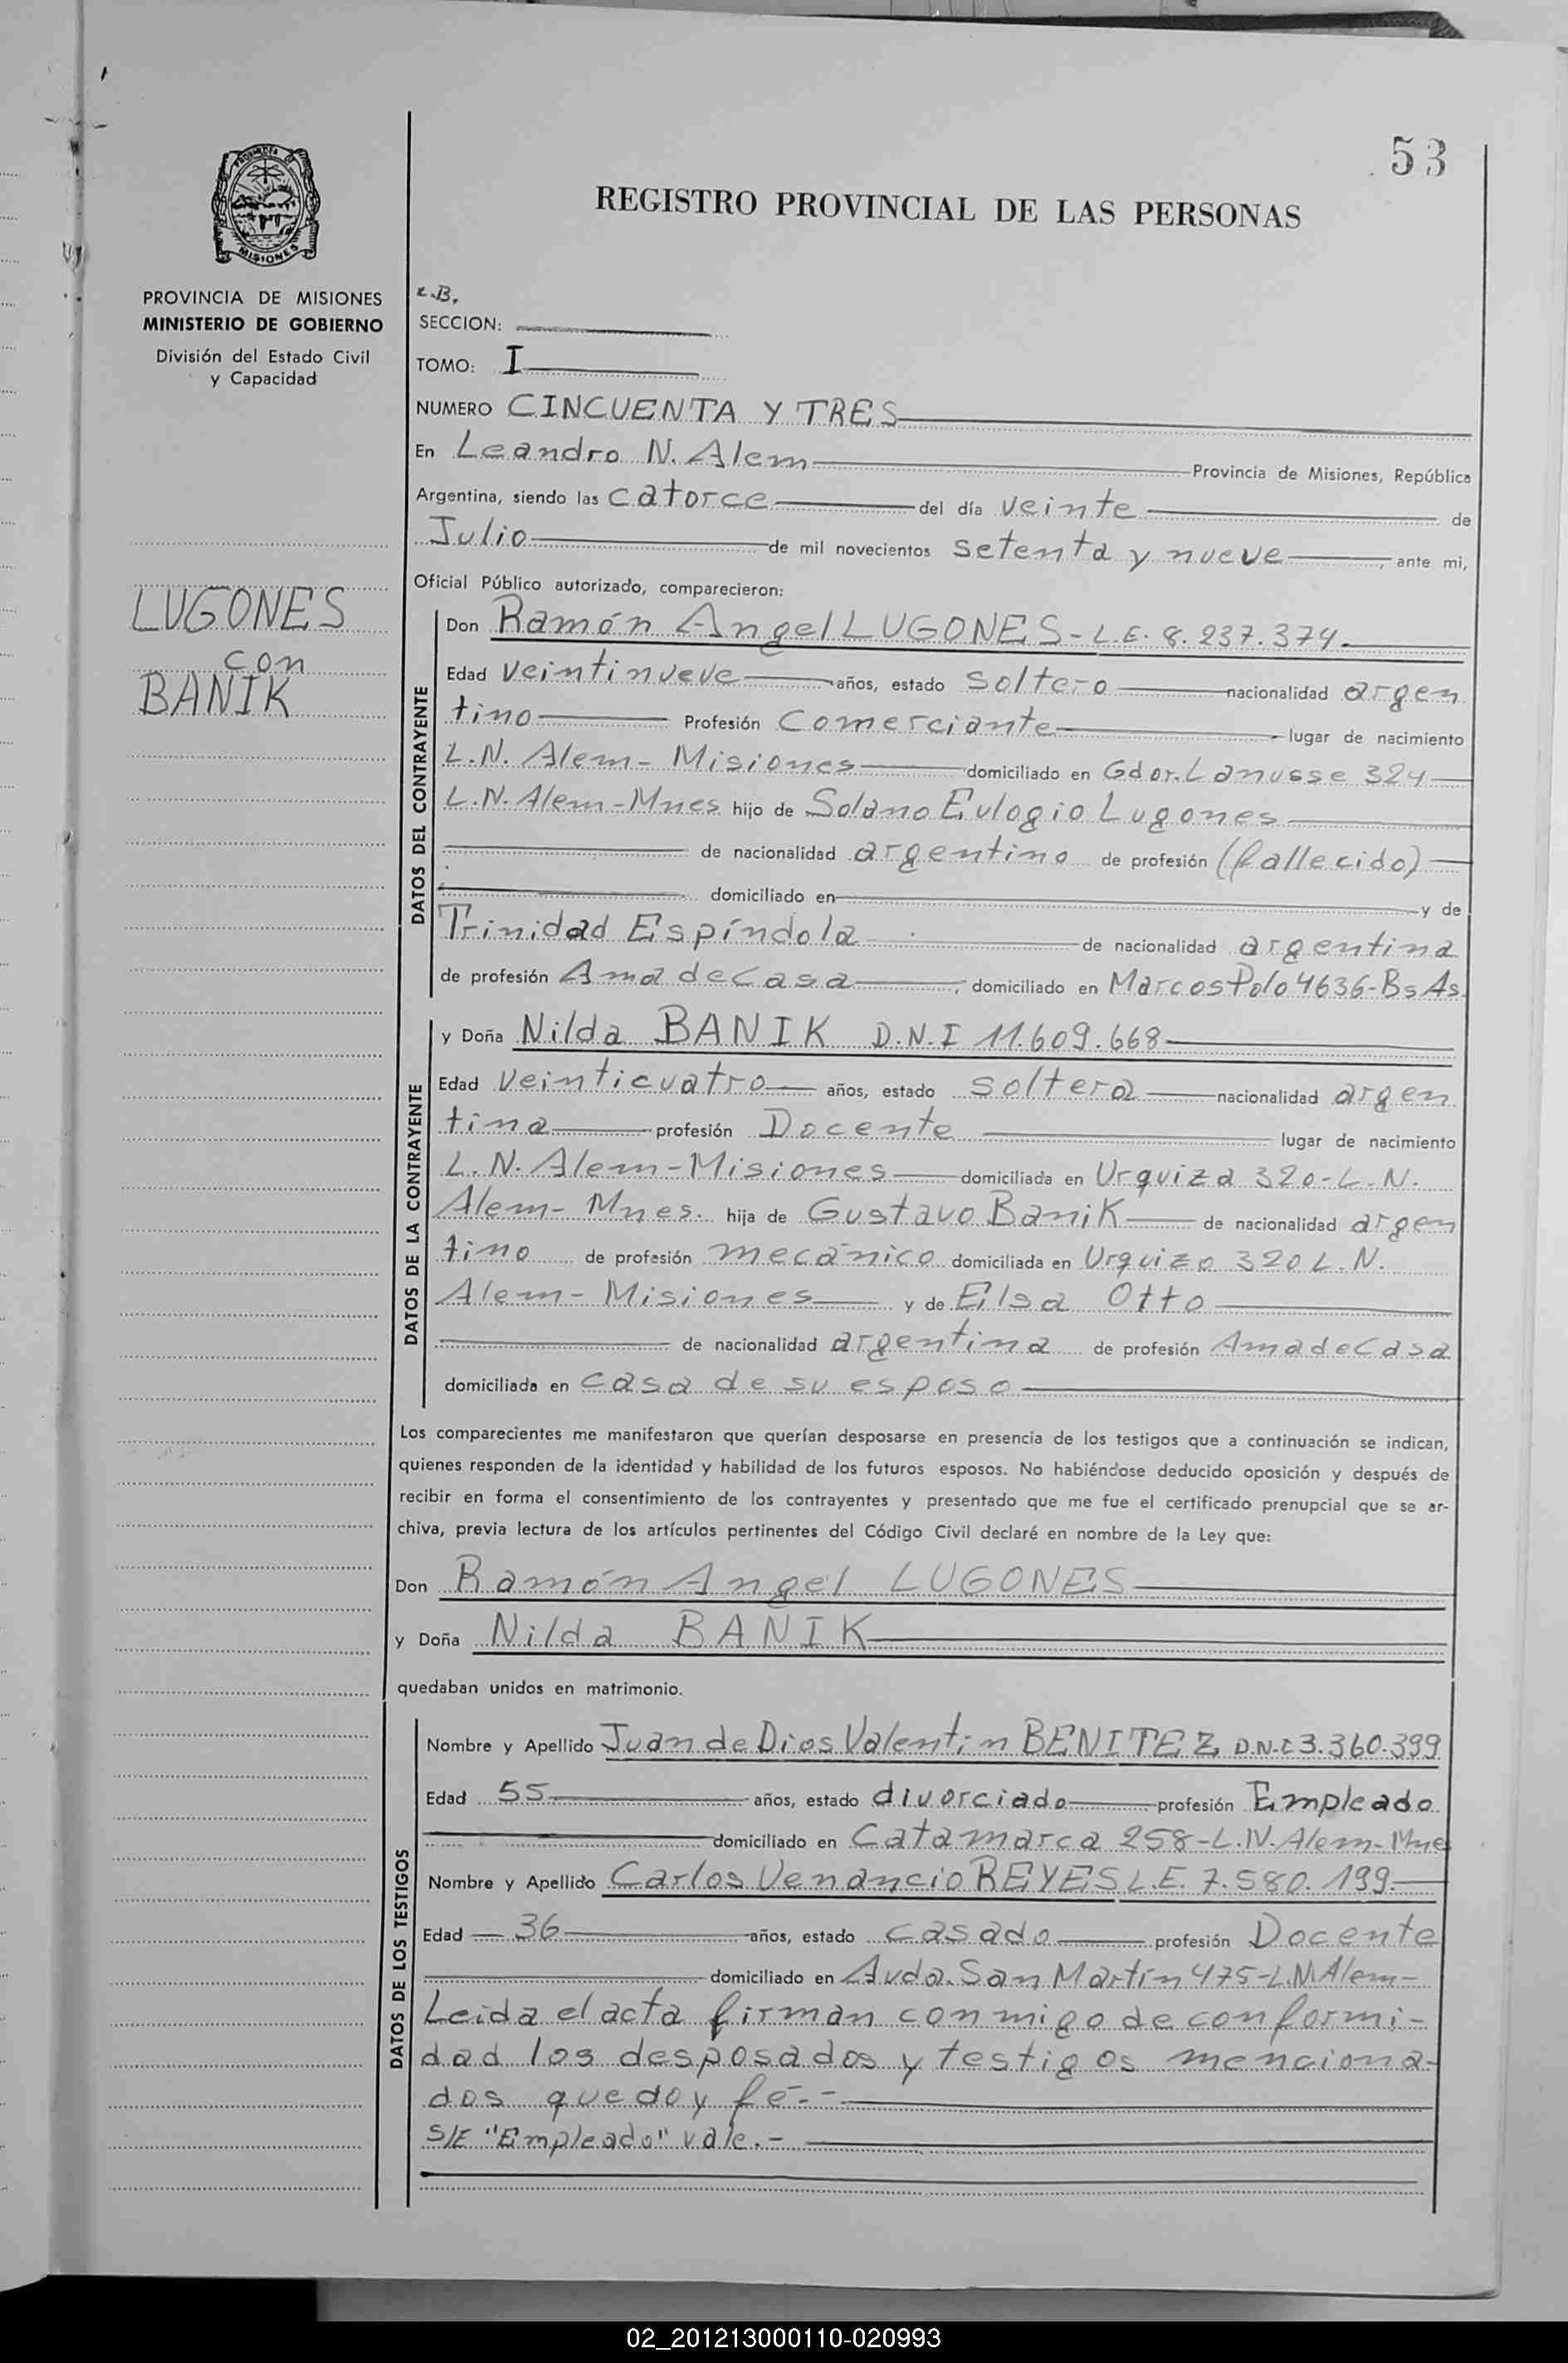 53
REGISTRO PROVINCIAL DE LAS PERSONAS
PROVINCIA DE MISIONES
MINISTERIO DE GOBIERNO
División del Estado Civil
y Capacidad
SECCION:
TOMO: I
NUMERO CINCUENTA Y TRES
En Leandro N. Alem Provincia de Misiones, República
Argentina, siendo las catorce del día veinte de
Julio de mil novecientos setenta y nueve, ante mi,
Oficial Público autorizado, comparecieron:
LUGONES
con
BANIK
DATOS DEL CONTRAYENTE
Don Ramón Angel LUGONES - L.E. 8.237.374.
Edad veintinueve años, estado soltero nacionalidad argen
tino Profesión Comerciante lugar de nacimiento
L.N. Alem - Misiones domiciliado en Gdor. Lanusse 324
L.N. Alem - Mnes hijo de Solano Eulogio Lugones
de nacionalidad argentino de profesión (fallecido)
domiciliado en y de
Trinidad Espíndola de nacionalidad argentina
de profesión Ama de Casa, domiciliado en Marcos Polo 4636-Bs As.
DATOS DE LA CONTRAYENTE
y Doña Nilda BANIK D.N.I 11.609.668
Edad veinticuatro años, estado soltera nacionalidad argen
tina profesión Docente lugar de nacimiento
L.N. Alem - Misiones domiciliada en Urquiza 320-L.N.
Alem - Mnes. hija de Gustavo Banik de nacionalidad argen
tino de profesión mecánico domiciliada en Urquiza 320 L.N.
Alem - Misiones y de Elsa Otto
de nacionalidad argentina de profesión Ama de Casa
domiciliada en casa de su esposo
Los comparecientes me manifestaron que querían desposarse en presencia de los testigos que a continuación se indican,
quienes responden de la identidad y habilidad de los futuros esposos. No habiéndose deducido oposición y después de
recibir en forma el consentimiento de los contrayentes y presentado que me fue el certificado prenupcial que se ar-
chiva, previa lectura de los artículos pertinentes del Código Civil declaré en nombre de la Ley que:
Don Ramón Angel LUGONES
y Doña Nilda BANIK
quedaban unidos en matrimonio.
DATOS DE LOS TESTIGOS
Nombre y Apellido Juan de Dios Valentín BENITEZ D.N.I 3.360.399
Edad 55 años, estado divorciado profesión Empleado
domiciliado en Catamarca 258-L.N. Alem-Mnes
Nombre y Apellido Carlos Venancio REYES L.E. 7.580.199.
Edad 36 años, estado casado profesión Docente
domiciliado en Avda. San Martín 475-L.N. Alem-
Leida el acta firman conmigo de conformi-
dad los desposados y testigos menciona-
dos que doy fé.-
S/E "Empleado" vale.-
02_201213000110-020993